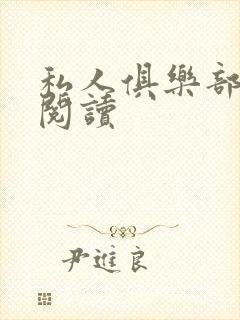 私人俱樂部
閱讀
尹進良